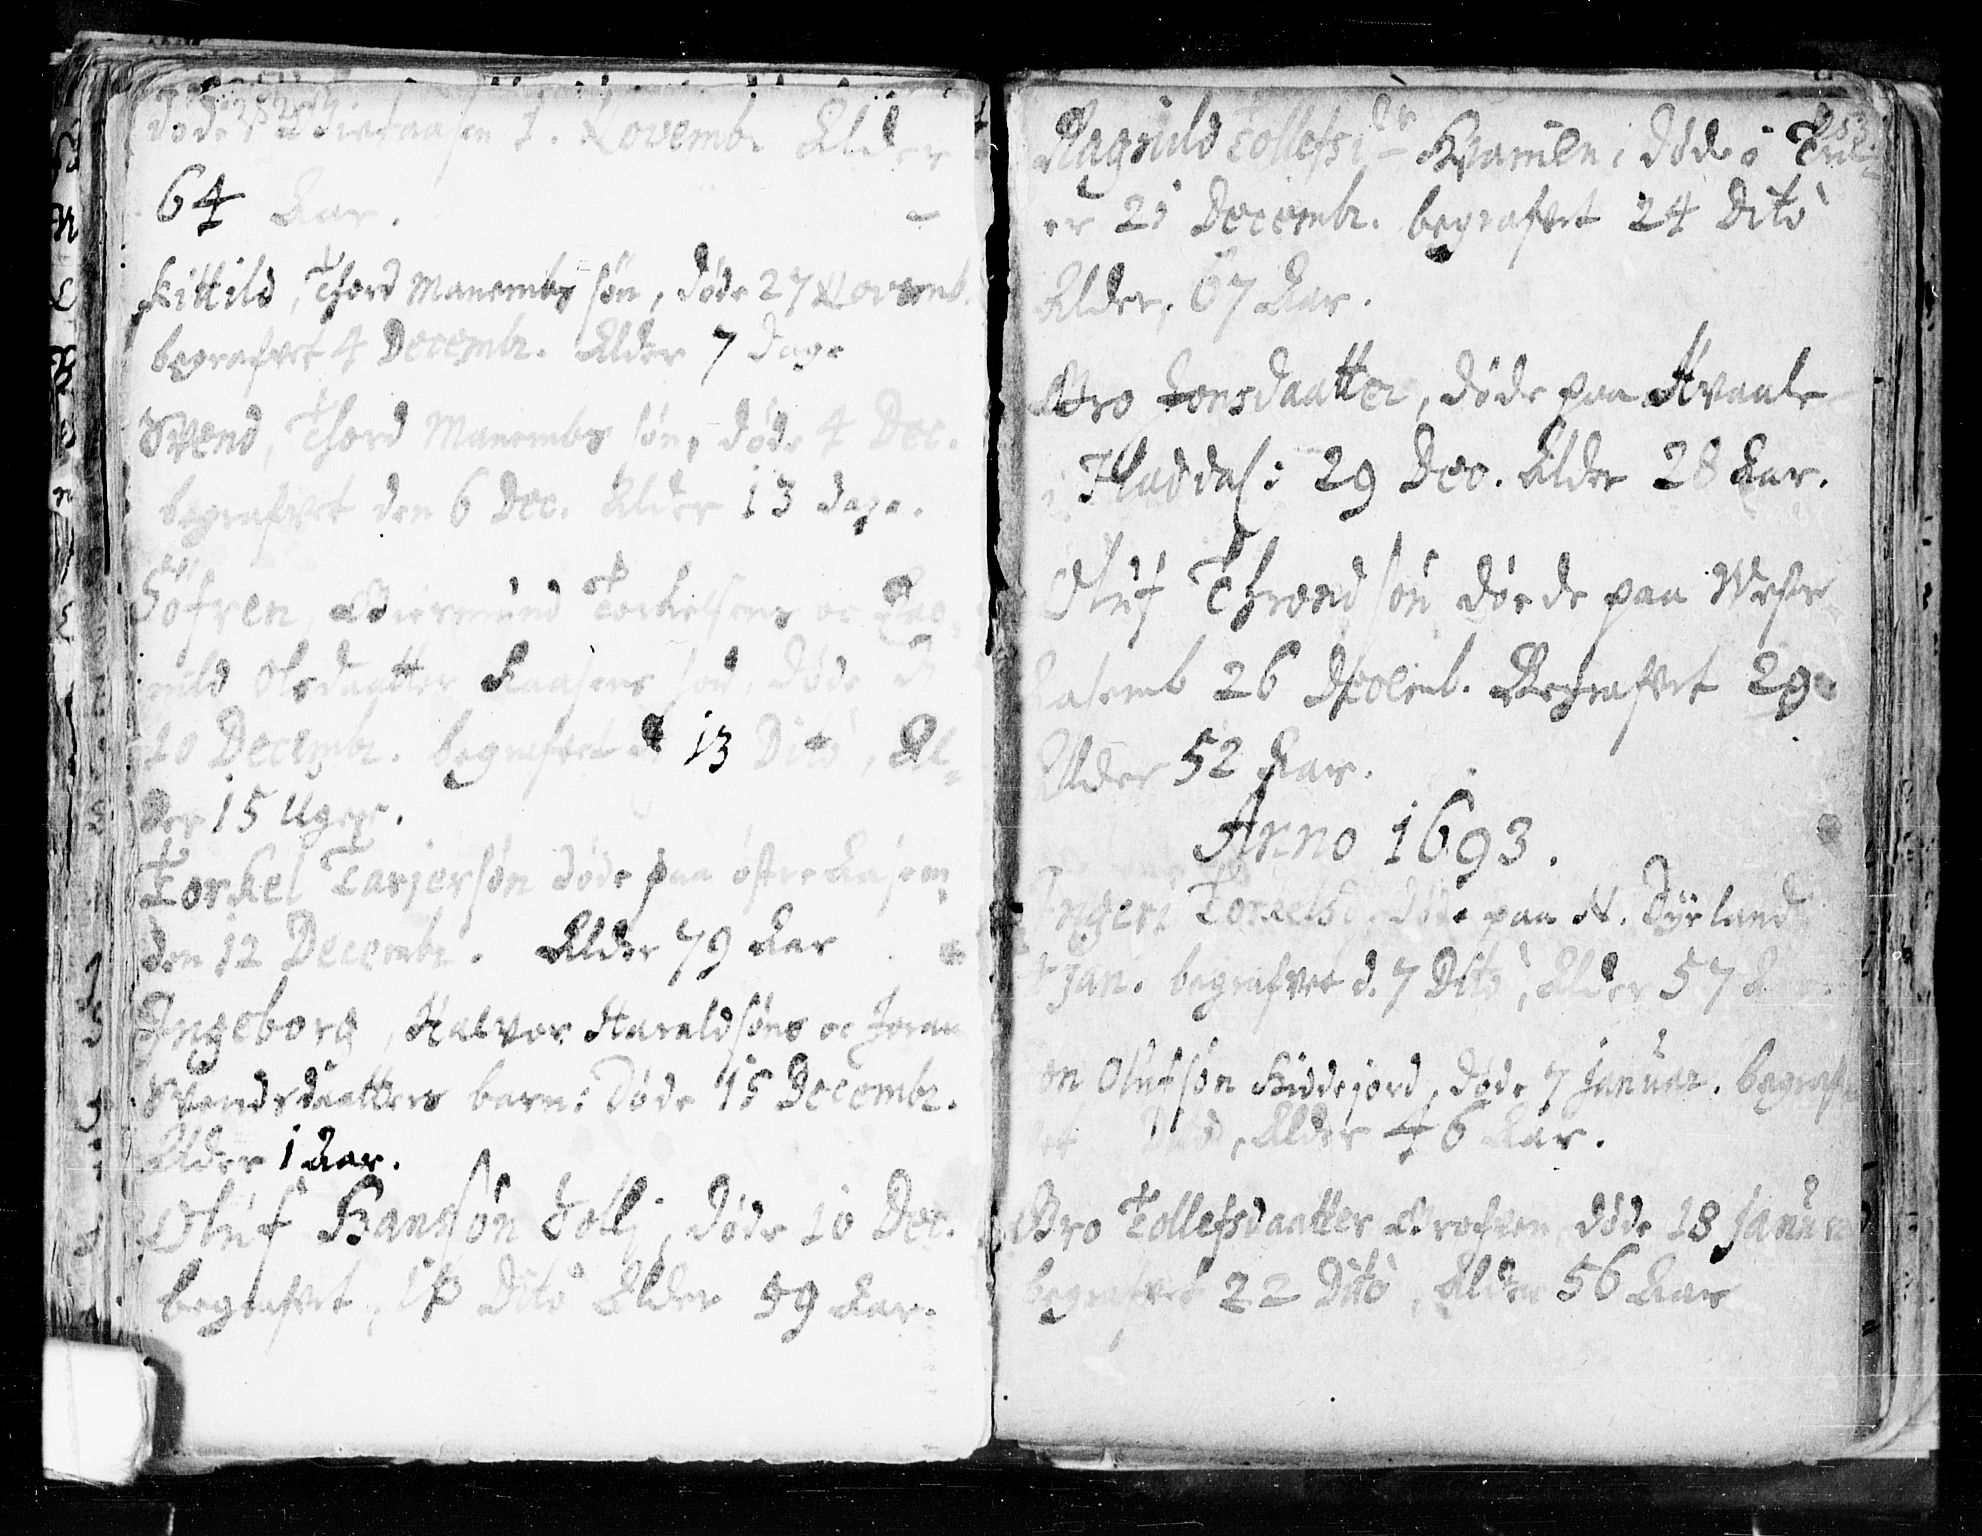 døde Novembr. Alder
64 Aar.
Kittild, Thord Manembs søn, døde 27 Novemb.
begrafvet 4 Decembr. Alder 7 Dage
Svend, Thord Manembs søn, døde 4 Dec.
begrafvet den 6 Dec. Alder 13 dage.
Söfren, Giermund Torkelsens oc Rag-
nild Olsdaatter Aasens søn, døde d
10 Decembr. begrafvet d 13 Dito, Al-
der 15 Uger.
Torkel Tarjersøn døde paa østre Aasem
den 12 Decembr. Alder 79 Aar
Ingeborg, Halvor Haraldsøns oc Joran
Svendsdaatters barn: Døde 15 Decembr.
Alder 1 Aar.
Oluf Hansøn døde 10 Dec.
begrafvet Dito Alder 59 Aar.
253.
Ragnild Tollefs Dr Kvamen, døde i
er 21 Decembr. begrafvet 24 Dito
Alder, 67 Aar.
Gro Jonsdaatter, døde paa Hvaale
i Hiaddal: 29 Dec. Alder 28 Aar.
Oluf Thrond søn døede paa Westre
Aasemb 26 Decemb. Begrafvet 29.
Alder 52 Aar.
Anno 1693.
Ingeri Torkelsd. døde paa N. Dyrland
4 Jan. begrafvet d. 7 Dito, Alder 57 Aar.
on Olufsøn Kiddejord, døde 7 Januar. begraf
vet Dito, Alder 46 Aar.
Gro Tollefsdaatter Grofven døde 18 Januar
begrafvet 22 Dito, Alder 56 Aar